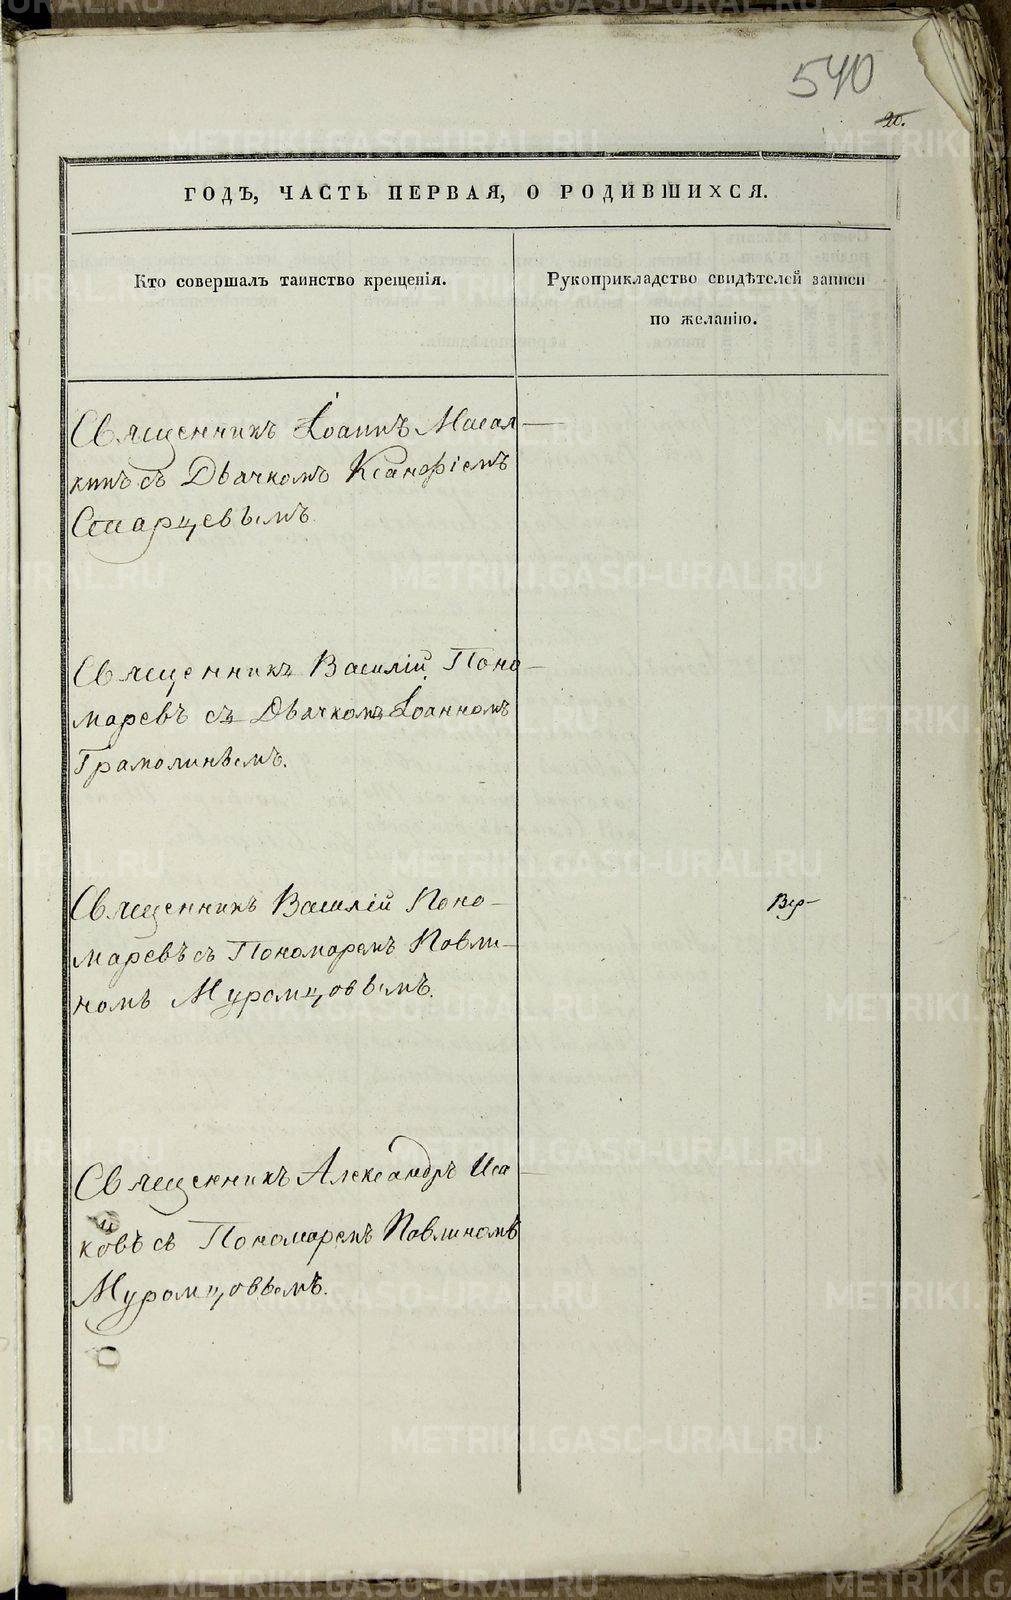 540
20.
ГОДЪ, ЧАСТЬ ПЕРВАЯ, О РОДИВШИХСЯ.
Кто совершалъ таинство крещенія.
Рукоприкладство свидѣтелей записи
по желанію.
Священникъ Іоаннъ Масал-
кинъ съ Дьячкомъ Ксанофіемъ
Старцевымъ.
Священникъ Василій Поно-
маревъ съ Дьячкомъ Іоанномъ
Грамолинымъ.
Священникъ Василій Поно-
маревъ съ Пономаремъ Павли-
номъ Муромцовымъ.
Вер-
Священникъ Александръ Иса-
ковъ съ Пономаремъ Павлиномъ
Муромцовымъ.
METRIKI.GASO-URAL.RU